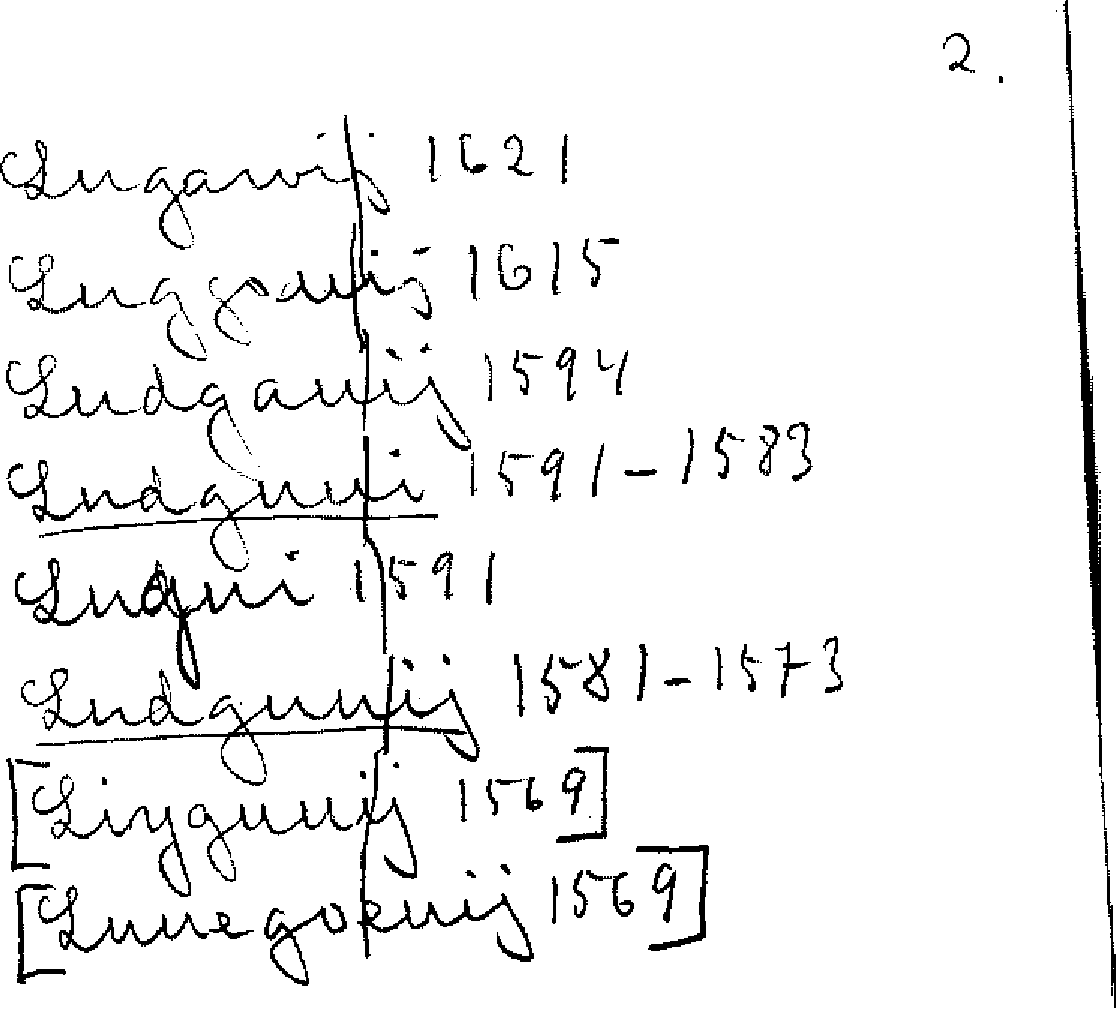 2.
Lugawij 1621
Luggauij 1615
Ludgauij 1594
Ludguui 1591-1583
Ludgui 1591
Ludguuij 1581-1573
[Liyguuij 1569]
[Luuegokuij 1569]